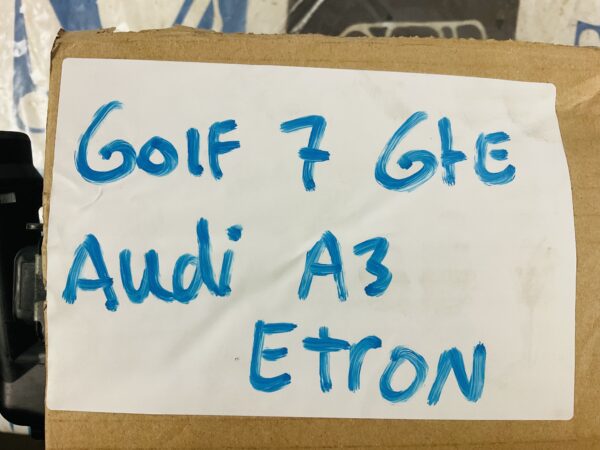 Golf 7 GtE
Audi A3
EtroN